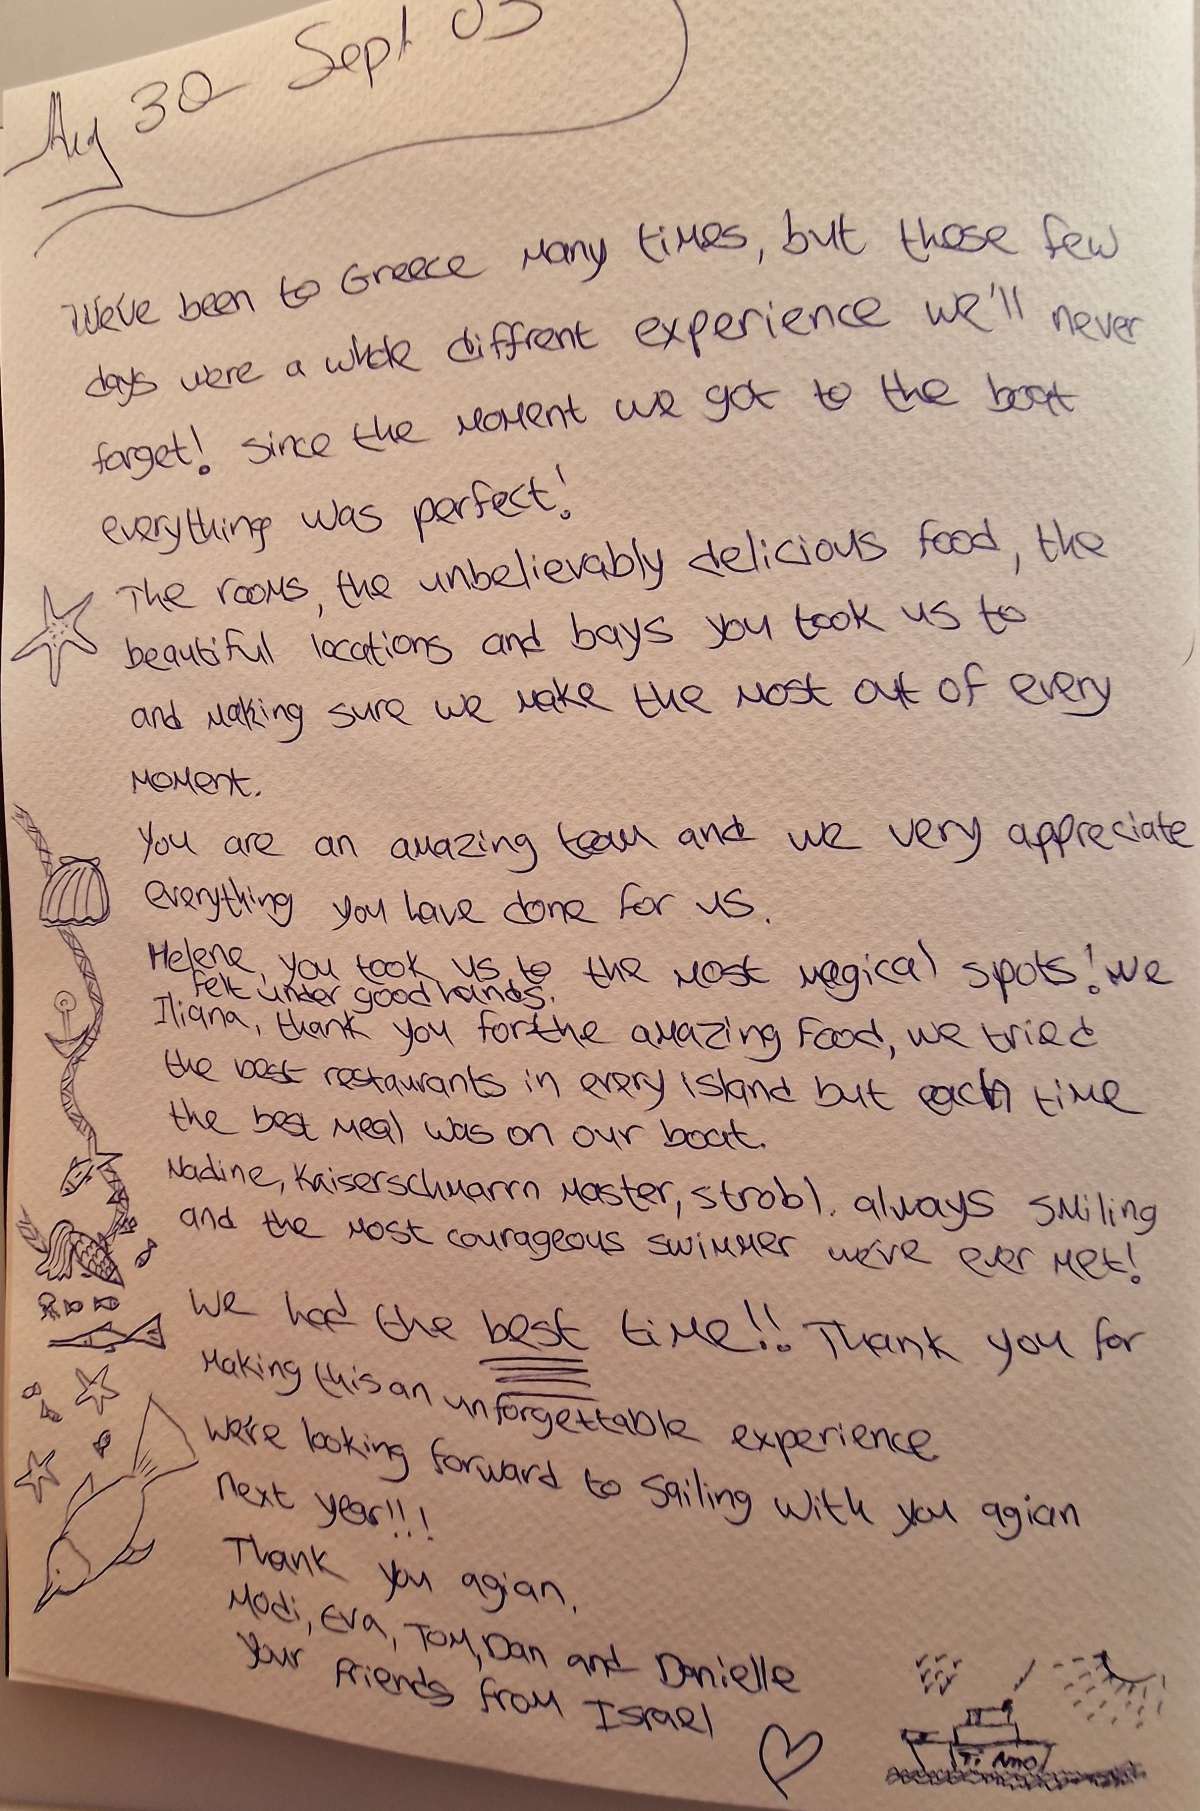 Aug 30 - Sept 03
We've been to Greece many times, but those few
days were a whole diffrent experience we'll never
forget! since the moment we got to the boat
everything was perfect!
The rooms, the unbelievably delicious food, the
beautiful locations and bays you took us to
and making sure we make the most out of every
moment.
You are an amazing team and we very appreciate
everything you have done for us.
Helene, you took us to the most magical spots! We
felt under good hands.
Iliana, thank you for the amazing food, we tried
the best restaurants in every island but each time
the best meal was on our boat.
Nadine, Kaiserschmarrn master, strobl. always smiling
and the most courageous swimmer we've ever met!
We had the best time!! Thank you for
making this an unforgettable experience
We're looking forward to sailing with you agian
next year!!!
Thank you agian,
Modi, Eva, Tom, Dan and Danielle
your friends from Israel
Ti Amo